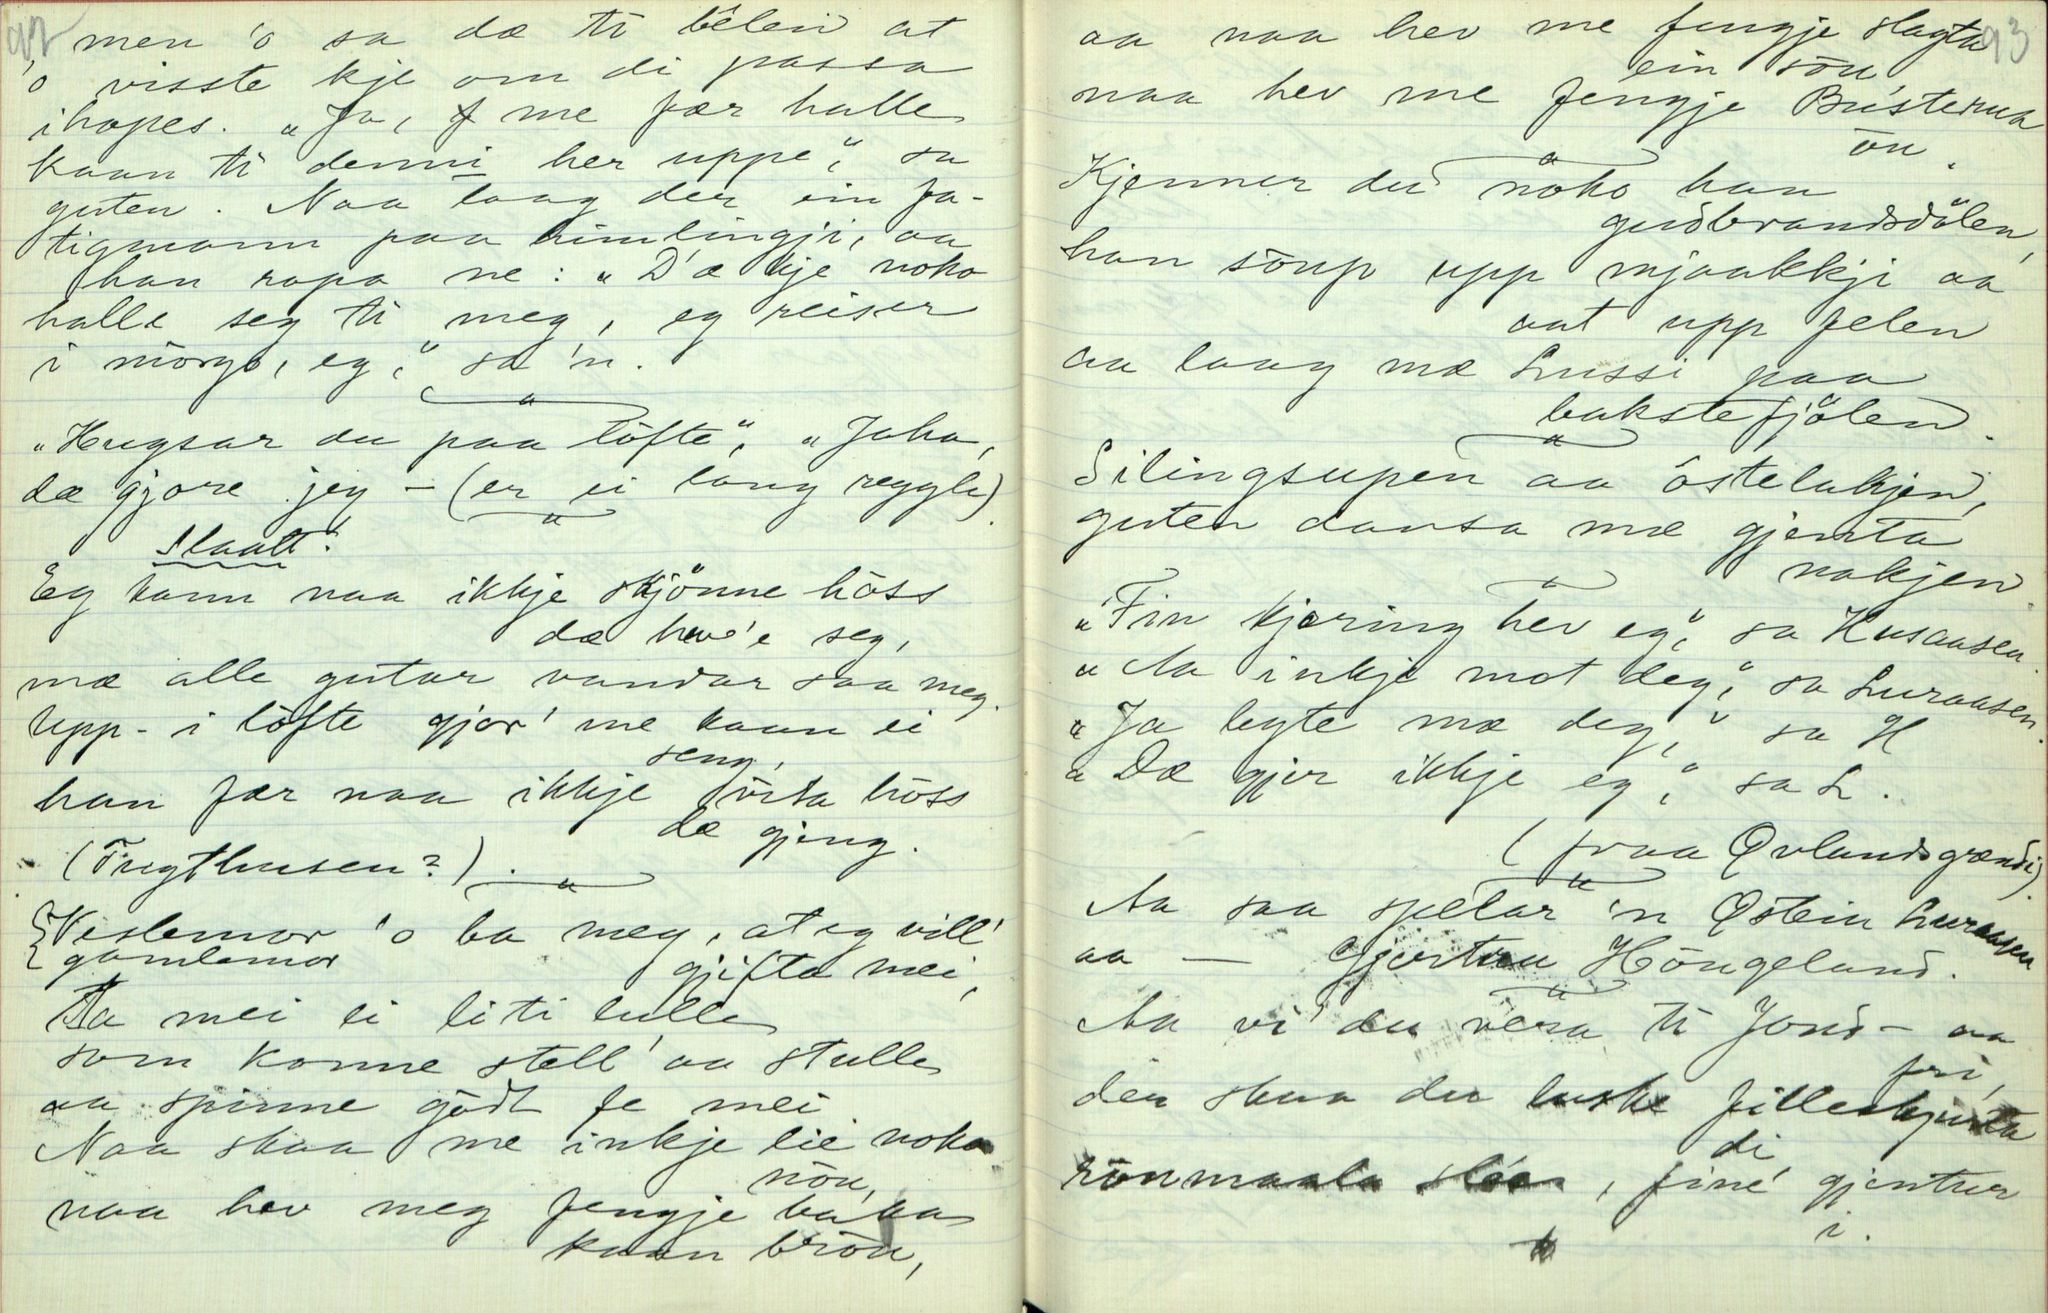 92
men 'o sa dæ ti bêlen at
'o visste kje om di passa
ihopes. „Ja, me fær halle
kaan ti denni her uppe", sa
guten. Naa laag der ein fa-
tigmann paa himlingji, aa
han ropa ne: „D'æ kje noko
halle seg ti meg, eg reiser
i môrgo, eg," sa 'n.
„Hugsar du paa löfte", „Joho,
dæ gjore jeg – (er ei lang reggle).
Slaatt:
Eg kann naa ikkje skjönne hôss
dæ hev'e seg,
mæ alle gutar vandar saa meg.
Upp- i löfte gjor' me kaan ei
seng,
han fær naa ikkje vita hôss
dæ gjeng.
(Trugthusen?).
Veslemor 'o ba meg, at eg vill'
gamlemor gjifta mei,
Ta mei ei liti lulle
som konne stell' aa stulle
aa spinne gôdt fe mei
Naa skaa me inkje lie noko
nôu,
naa hev meg fengje baka
kaan brôu,
93
aa naa hev me fengje slagta
ein sôu
naa hev me fengje Brústerua
ôu.
Kjenner du noko han
gudbrandsdölen,
han sôup upp mjaakkji aa
aat upp felen
aa laag mæ Lussi paa
bakstefjölen.
Silingsupen aa ôstelakjen,
guten dansa mæ gjenta
nakjen.
„Fin kjæring hev eg", sa Husaasen.
„Aa inkje mot deg," sa Luraasen.
„Ja legte mæ deg," sa H
„Dæ gjer ikkje eg," sa L.
(fraa Øvlandsgrændi).
Aa saa spelar 'n Østein Luraasen
aa — Gjertru Hôngeland.
Aa vi' du vera ti Jond – aa
fri,
der skaa du luske filleskjurta
di
rônmaala slôe, fine' gjentur
i.